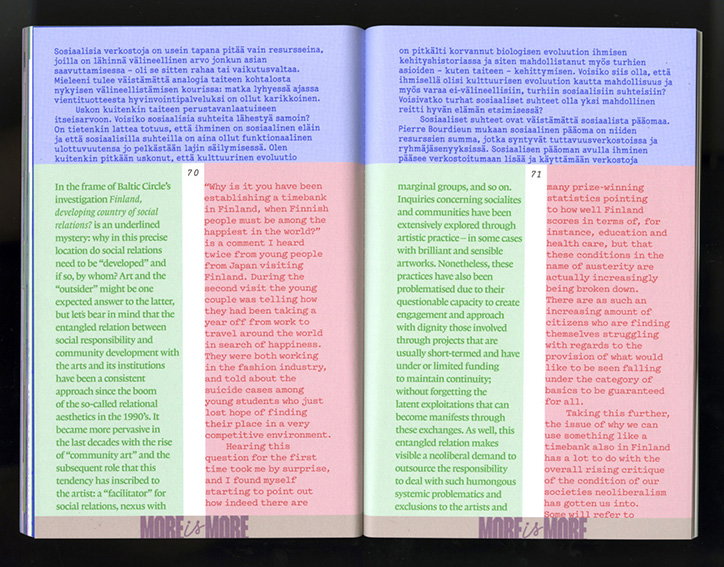 Sosiaalisia verkostoja on usein tapana pitää vain resursseina,
joilla on lähinnä välineellinen arvo jonkun asian
saavuttamisessa – oli se sitten rahaa tai vaikutusvaltaa.
Mieleeni tulee väistämättä analogia taiteen kohtalosta
nykyisen välineellistämisen kourissa: matka lyhyessä ajassa
vientituotteesta hyvinvointipalveluksi on ollut karikkoinen.
Uskon kuitenkin taiteen perustavanlaatuiseen
itseisarvoon. Voisiko sosiaalisia suhteita lähestyä samoin?
On tietenkin lattea totuus, että ihminen on sosiaalinen eläin
ja että sosiaalisilla suhteilla on aina ollut funktionaalinen
ulottuvuutensa jo pelkästään lajin säilymisessä. Olen
kuitenkin pitkään uskonut, että kulttuurinen evoluutio
70
In the frame of Baltic Circle's
investigation Finland,
developing country of social
relations? is an underlined
mystery: why in this precise
location do social relations
need to be "developed" and
if so, by whom? Art and the
"outsider" might be one
expected answer to the latter,
but let's bear in mind that the
entangled relation between
social responsibility and
community development with
the arts and its institutions
have been a consistent
approach since the boom
of the so-called relational
aesthetics in the 1990's. It
became more pervasive in
the last decades with the rise
of "community art" and the
subsequent role that this
tendency has inscribed to
the artist: a "facilitator" for
social relations, nexus with
"Why is it you have been
establishing a timebank
in Finland, when Finnish
people must be among the
happiest in the world?"
is a comment I heard
twice from young people
from Japan visiting
Finland. During the
second visit the young
couple was telling how
they had been taking a
year off from work to
travel around the world
in search of happiness.
They were both working
in the fashion industry,
and told about the
suicide cases among
young students who just
lost hope of finding
their place in a very
competitive environment.
Hearing this
question for the first
time took me by surprise,
and I found myself
starting to point out
how indeed there are
MORE is MORE
on pitkälti korvannut biologisen evoluution ihmisen
kehityshistoriassa ja siten mahdollistanut myös turhien
asioiden – kuten taiteen – kehittymisen. Voisiko siis olla, että
ihmisellä olisi kulttuurisen evoluution kautta mahdollisuus ja
myös varaa ei-välineellisiin, turhiin sosiaalisiin suhteisiin?
Voisivatko turhat sosiaaliset suhteet olla yksi mahdollinen
reitti hyvän elämän etsimisessä?
Sosiaaliset suhteet ovat väistämättä sosiaalista pääomaa.
Pierre Bourdieun mukaan sosiaalinen pääoma on niiden
resurssien summa, jotka syntyvät tuttavuusverkostoissa ja
ryhmäjäsenyyksissä. Sosiaalisen pääoman avulla ihminen
pääsee verkostoitumaan lisää ja käyttämään verkostoja
71
marginal groups, and so on.
Inquiries concerning socialites
and communities have been
extensively explored through
artistic practice – in some cases
with brilliant and sensible
artworks. Nonetheless, these
practices have also been
problematised due to their
questionable capacity to create
engagement and approach
with dignity those involved
through projects that are
usually short-termed and have
under or limited funding
to maintain continuity;
without forgetting the
latent exploitations that can
become manifests through
these exchanges. As well, this
entangled relation makes
visible a neoliberal demand to
outsource the responsibility
to deal with such humongous
systemic problematics and
exclusions to the artists and
many prize-winning
statistics pointing
to how well Finland
scores in terms of, for
instance, education and
health care, but that
these conditions in the
name of austerity are
actually increasingly
being broken down.
There are as such an
increasing amount of
citizens who are finding
themselves struggling
with regards to the
provision of what would
like to be seen falling
under the category of
basics to be guaranteed
for all.
Taking this further,
the issue of why we can
use something like a
timebank also in Finland
has a lot to do with the
overall rising critique
of the condition of our
societies neoliberalism
has gotten us into.
Some will refer to
MORE is MORE